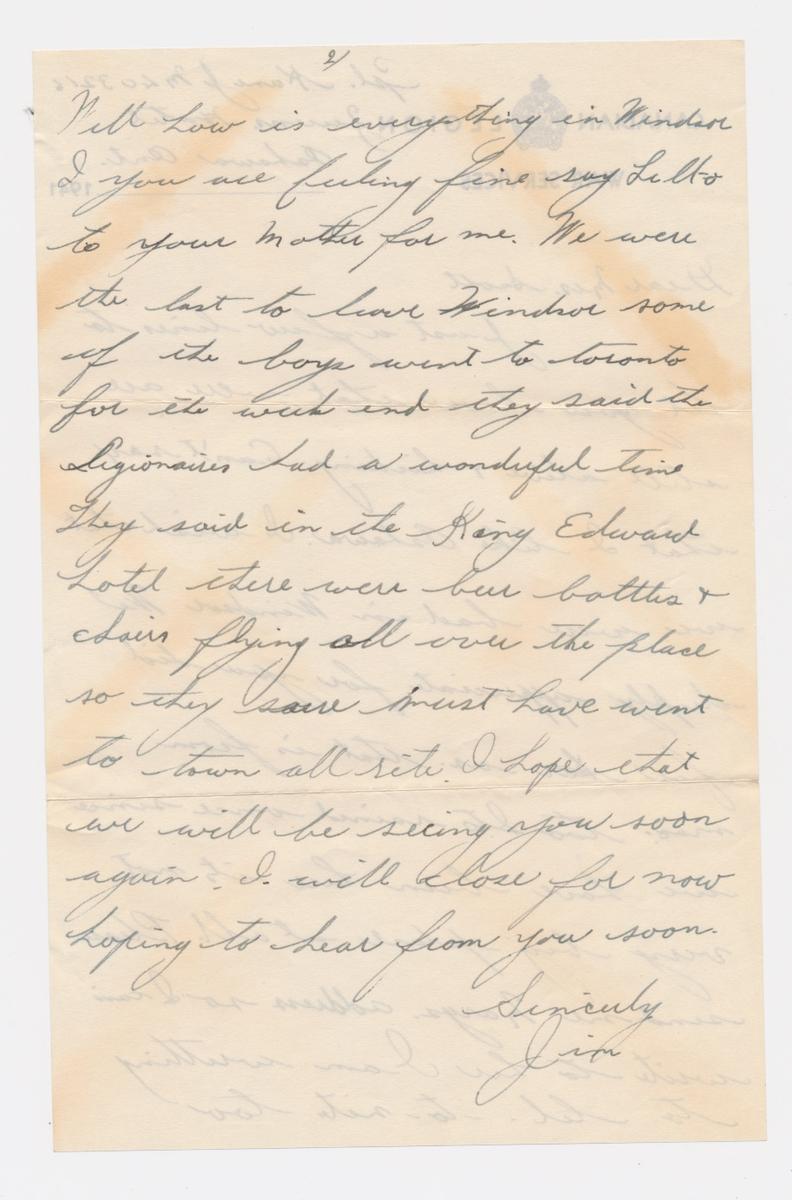 2/
Well how is everything in Windsor
I you are feeling fine say hello
to your Mother for me. We were
the last to leave Windsor some
of the boys went to toronto
for the week end they said the
Legionaires had a wonderful time
They said in the King Edward
hotel there were beer bottles &
chairs flying all over the place
so they saure must have went
to town all rite. I hope that
we will be seeing you soon
again. I will close for now
hoping to hear from you soon.
Sincerly
Jim